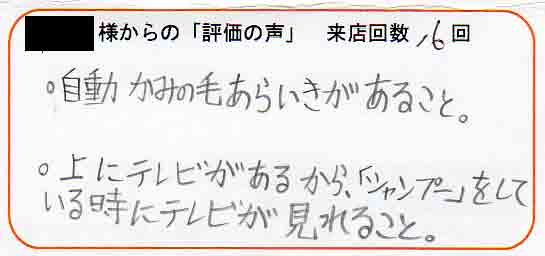 様からの「評価の声」 来店回数 16 回
。自動かみの毛あらいきがあること。
。上にテレビがあるから、「シャンプー」をして
いる時にテレビが見れること。